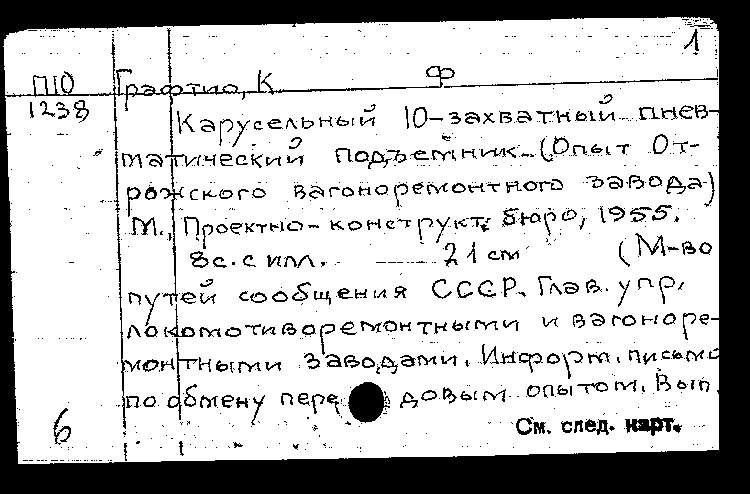 1
П10 Графтио, К. Ф
1238 Карусельный 10-захватный пнев-
матический подъемник. (Опыт От-
рожского вагоноремонтного завода)
М., Проектно-конструкт. бюро, 1955.
8с. с илл. 21 см (М-во
путей сообщения СССР. Глав. упр.
локомотиворемонтными и вагоноре-
монтными заводами. Информ. письмо
по обмену передовым опытом. Вып.
6 См. след. карт.